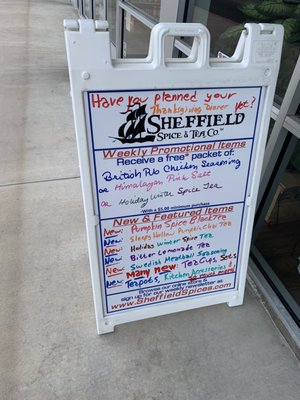 Have you planned your
Thanksgiving Dinner yet?
SHEFFIELD
SPICE & TEA CO.
Weekly Promotional Items
Receive a free* packet of:
British Pub Chicken Seasoning
or Himalayan Pink Salt
or Holiday Winter Spice Tea
*With a $5.00 minimum purchase
New & Featured Items
New: Pumpkin Spice Black Tea
New: Sleepy Hollow Pumpkin Chai Tea
New: Holiday Winter Spice Tea
New: Bitter Lemonade Tea
New: Swedish Meatball Seasoning
New: Many new: Tea Cups, Sets,
New: Teapots, Kitchen Accessories &
so much more!
Browse our online store &
sign up for our weekly newsletter at
www.SheffieldSpices.com